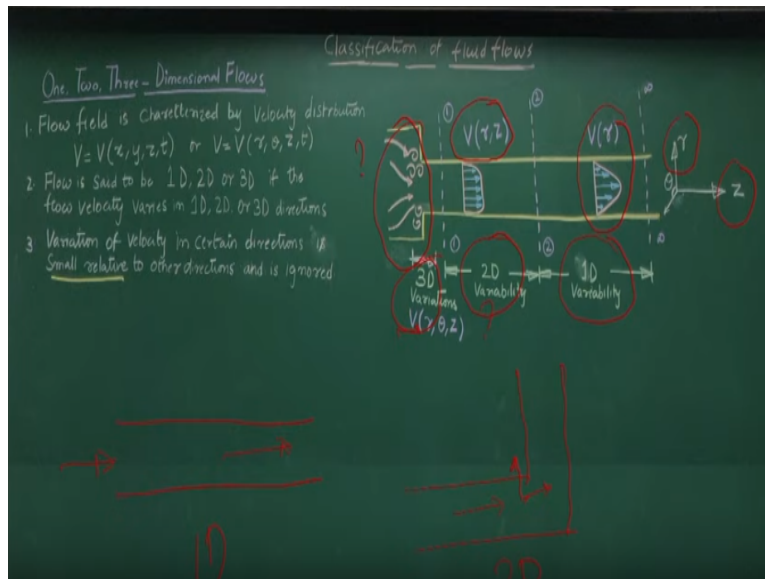 Classification of fluid flows
One, Two, Three-Dimensional Flows
1. Flow field is charetterized by velocity distribution
V = V(x, y, z, t) or V = V(r, θ, z, t)
2. Flow is said to be 1D, 2D or 3D if the
flow velocity varies in 1D, 2D, or 3D directions
3. Variation of velocity in certain directions is
Small relative to other directions and is ignored
?
① V(r, z) ② V(r) ∞
r
θ
z
① ② ∞
3D
Variations
V(r, θ, z)
2D
Variability
?
1D
Variability
1D
2D